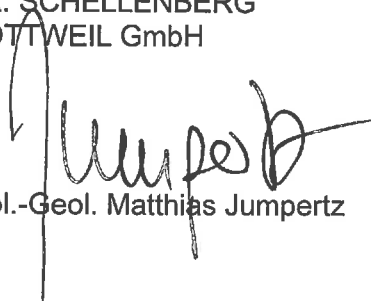 . SCHELLENBERG
OTTWEIL GmbH
Jumpertz
ol.-Geol. Matthias Jumpertz